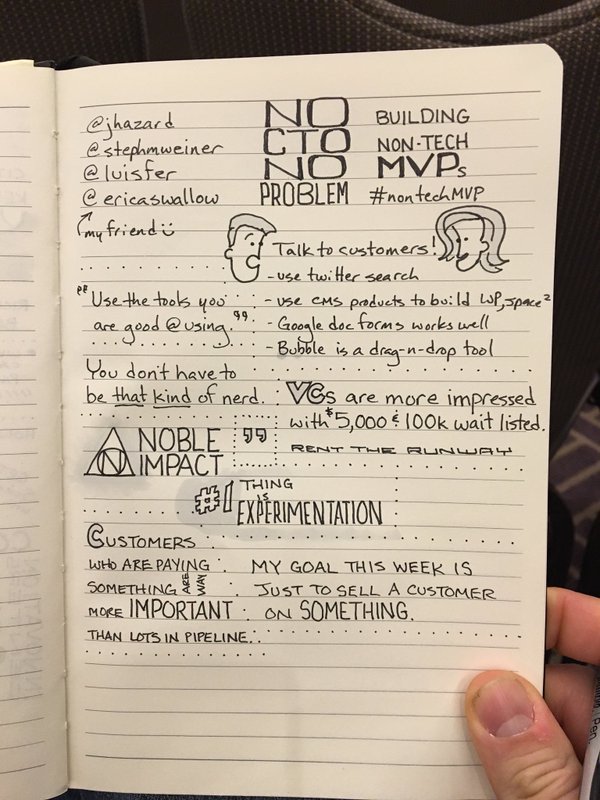 @jhazard
@stephmweiner
@luisfer
@ericaswallow
my friend
NO
CTO
NO
PROBLEM
BUILDING
NON-TECH
MVPs
#nontechMVP
Talk to customers!
- use twitter search
- use CMS products to build WP, space²
- Google doc forms works well
- Bubble is a drag-n-drop tool
"Use the tools you
are good @ using."
You don't have to
be that kind of nerd.
VCs are more impressed
with $5,000 & 100k wait listed.
RENT THE RUNWAY
N NOBLE
IMPACT
"
#1 THING
IS
EXPERIMENTATION
CUSTOMERS
WHO ARE PAYING
SOMETHING ARE WAY
MORE IMPORTANT
THAN LOTS IN PIPELINE.
MY GOAL THIS WEEK IS
JUST TO SELL A CUSTOMER
ON SOMETHING.
Pen.